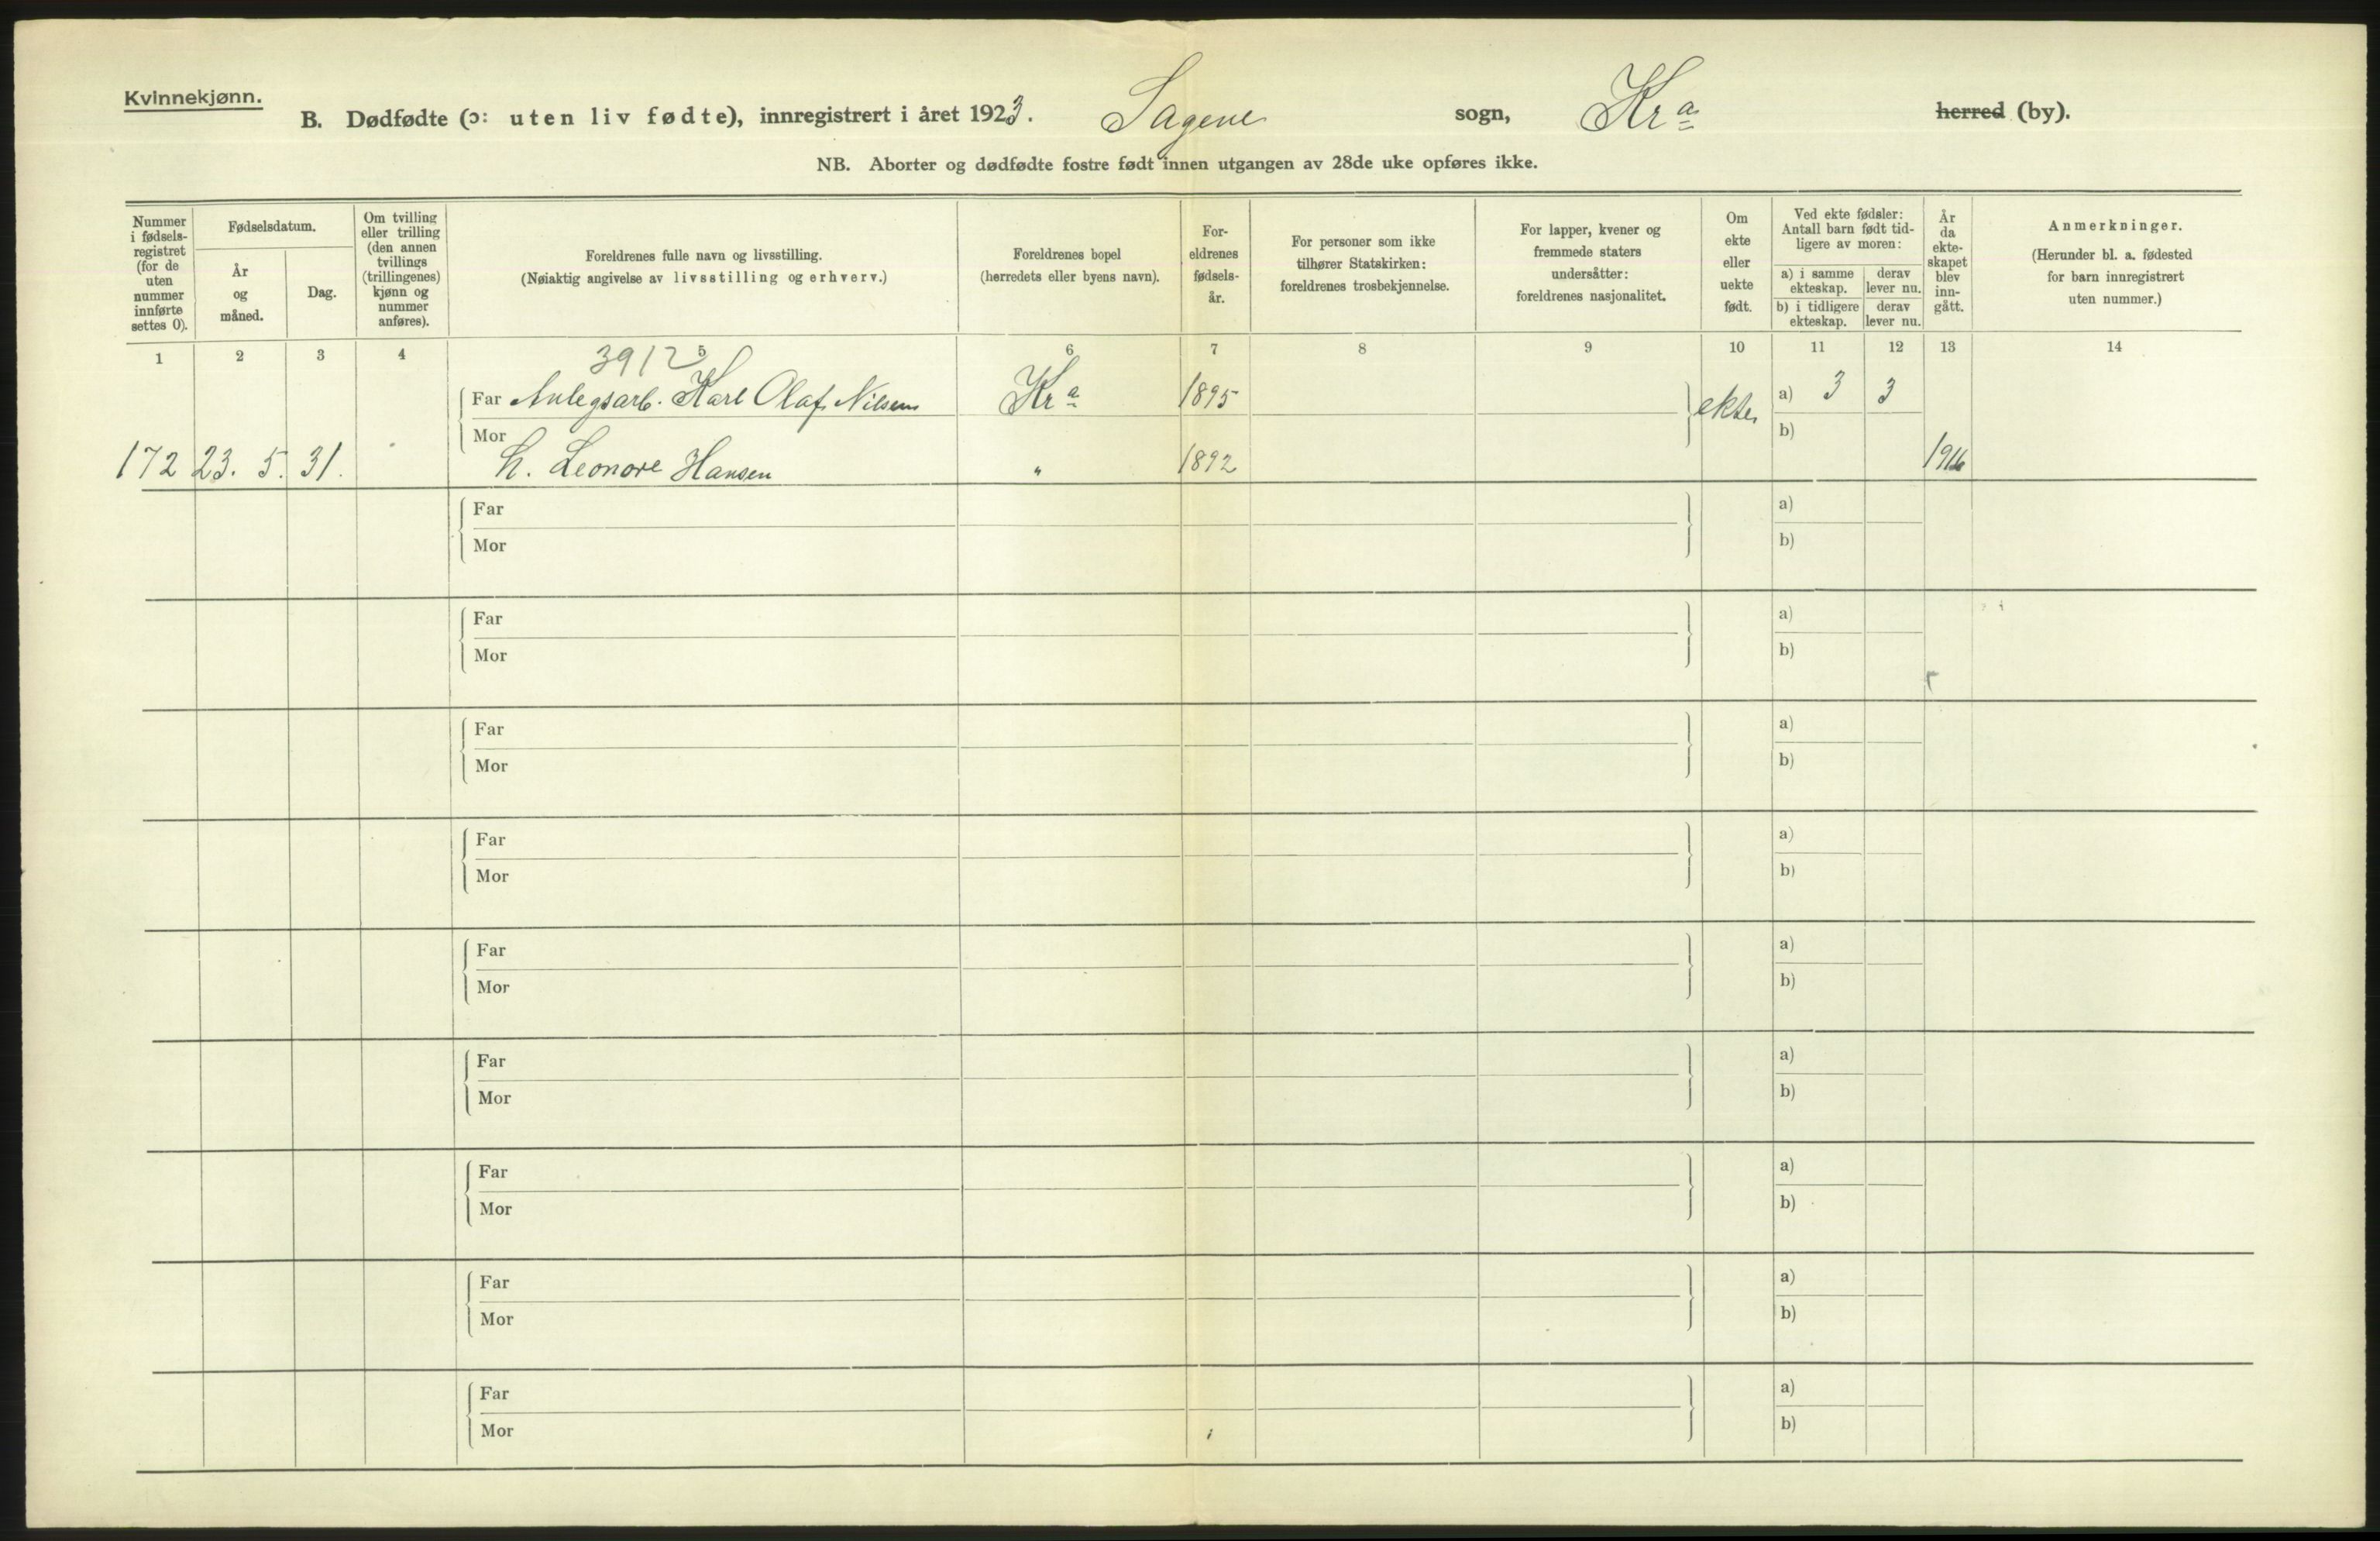 Kvinnekjønn.
B. Dødfødte (ɔ: uten liv fødte), innregistrert i året 1923. Sagene sogn, Kra herred (by).
NB. Aborter og dødfødte fostre født innen utgangen av 28de uke opføres ikke.
Nummer
i fødsels-
registret
(for de
uten
nummer
innførte
settes 0).
Fødselsdatum.
År
og
måned.
Dag.
Om tvilling
eller trilling
(den annen
tvillings
(trillingenes)
kjønn og
nummer
anføres).
Foreldrenes fulle navn og livsstilling.
(Nøiaktig angivelse av livsstilling og erhverv.)
Foreldrenes bopel
(herredets eller byens navn).
For-
eldrenes
fødsels-
år.
For personer som ikke
tilhører Statskirken:
foreldrenes trosbekjennelse.
For lapper, kvener og
fremmede staters
undersåtter:
foreldrenes nasjonalitet.
Om
ekte
eller
uekte
født.
Ved ekte fødsler:
Antall barn født tid-
ligere av moren:
a) i samme
ekteskap.
derav
lever nu.
b) i tidligere
ekteskap.
derav
lever nu.
År
da
ekte-
skapet
blev
inn-
gått.
Anmerkninger.
(Herunder bl. a. fødested
for barn innregistrert
uten nummer.)
1 2 3 4 5 6 7 8 9 10 11 12 13 14
3912
Far Anlegsarb. Karl Olaf Nilsen Kra 1895 ekte a) 3 3
Mor b)
172 23. 5. 31. h. Leonore Hansen " 1892 1916
Far a)
Mor b)
Far a)
Mor b)
Far a)
Mor b)
Far a)
Mor b)
Far a)
Mor b)
Far a)
Mor b)
Far a)
Mor b)
Far a)
Mor b)
Far a)
Mor b)